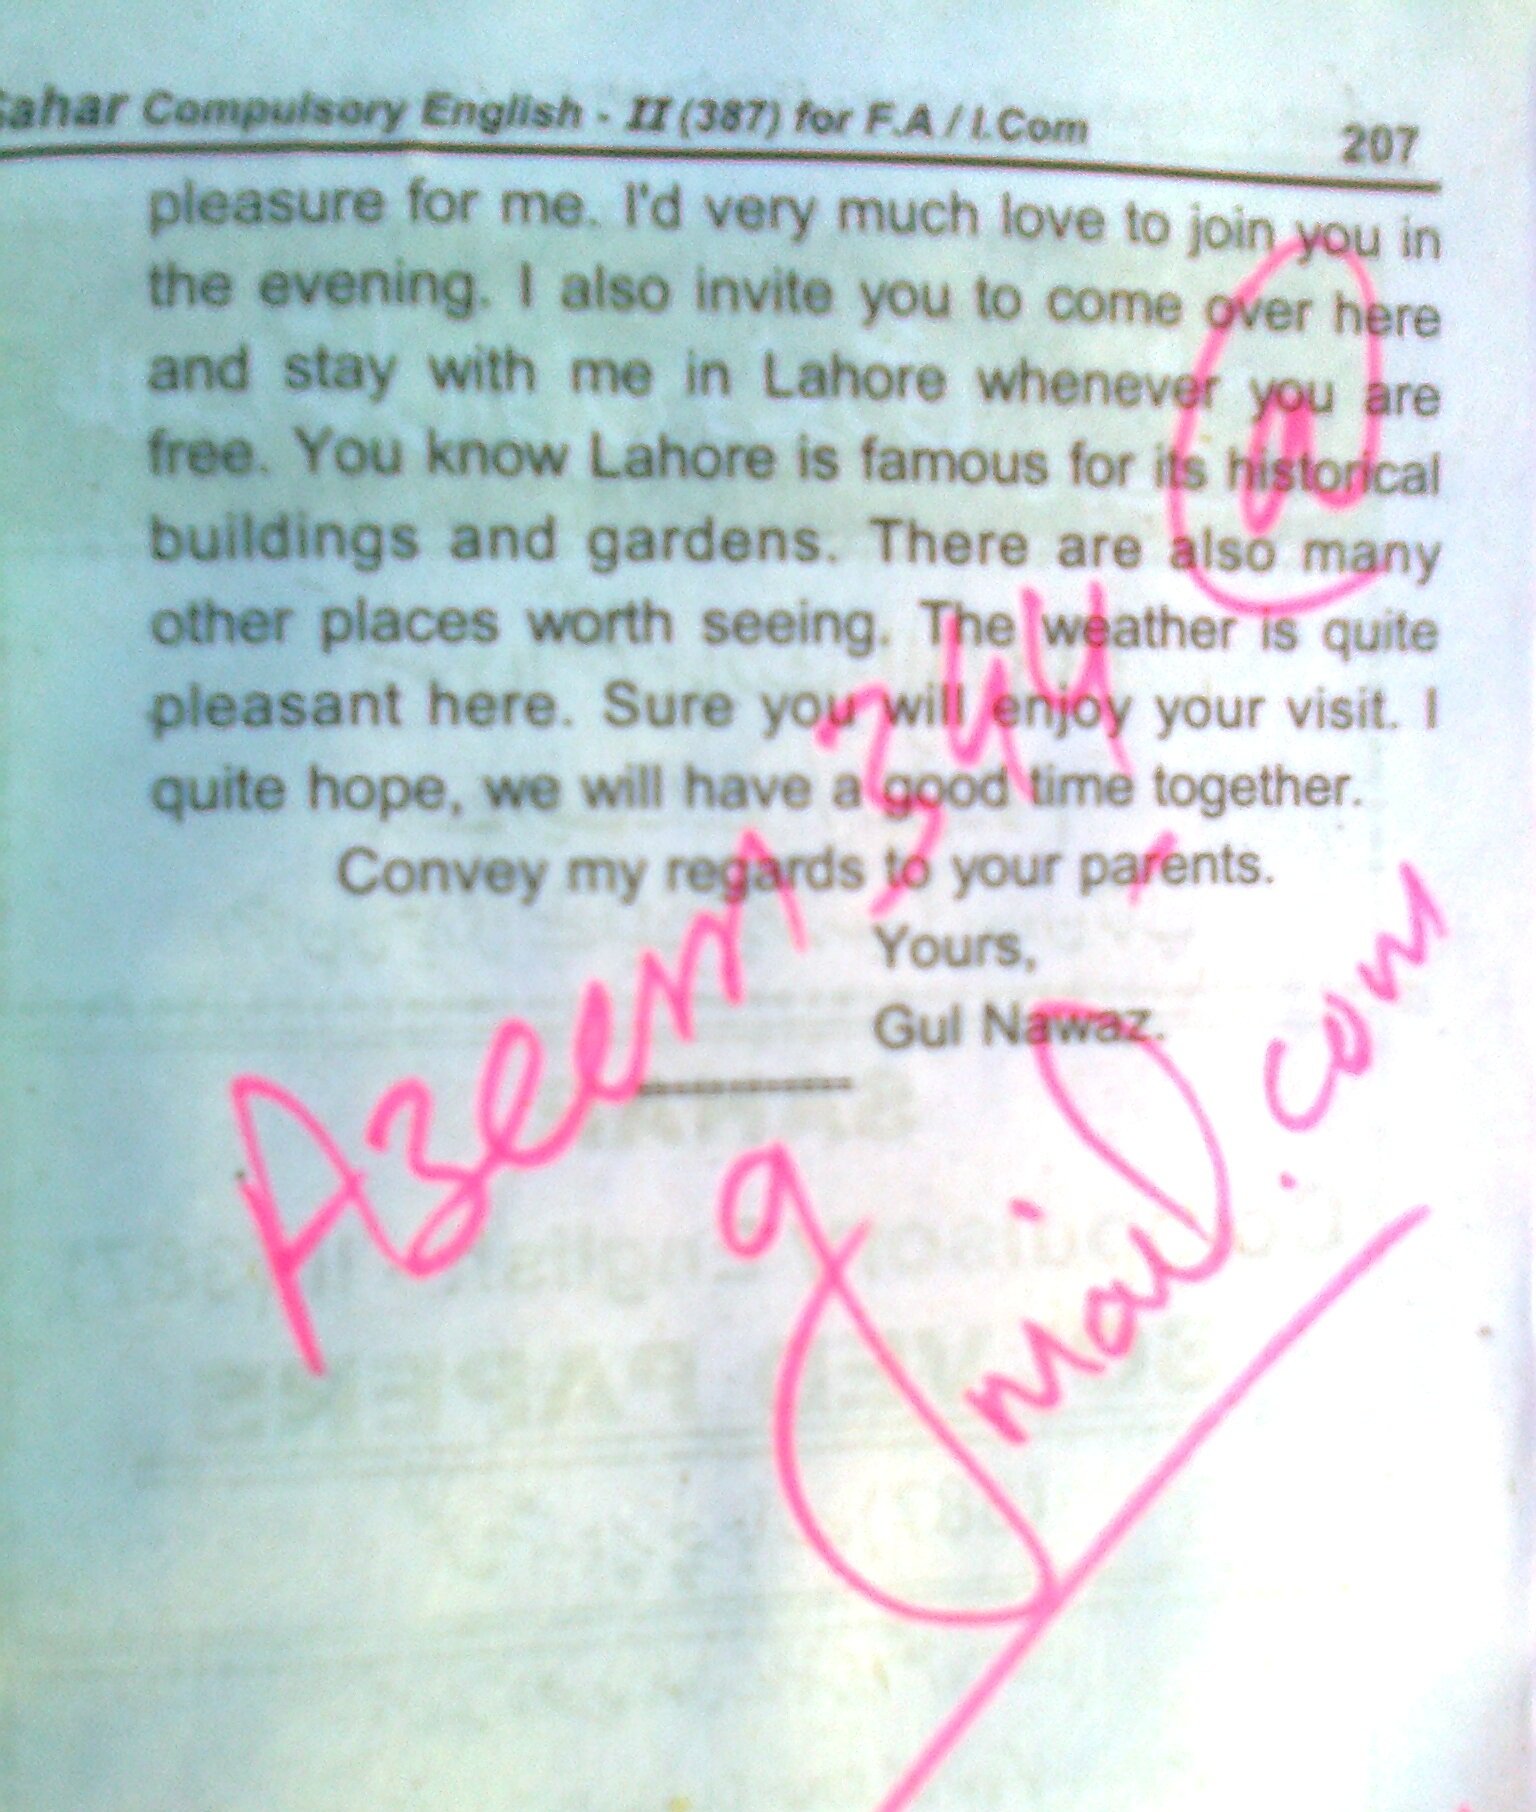 Sahar Compulsory English - II (387) for F.A / I.Com 207
pleasure for me. I'd very much love to join you in
the evening. I also invite you to come over here
and stay with me in Lahore whenever you are
free. You know Lahore is famous for its historical
buildings and gardens. There are also many
other places worth seeing. The weather is quite
pleasant here. Sure you will enjoy your visit. I
quite hope, we will have a good time together.
Convey my regards to your parents.
Yours,
Gul Nawaz.
Azeem 344 - @
gmail.com